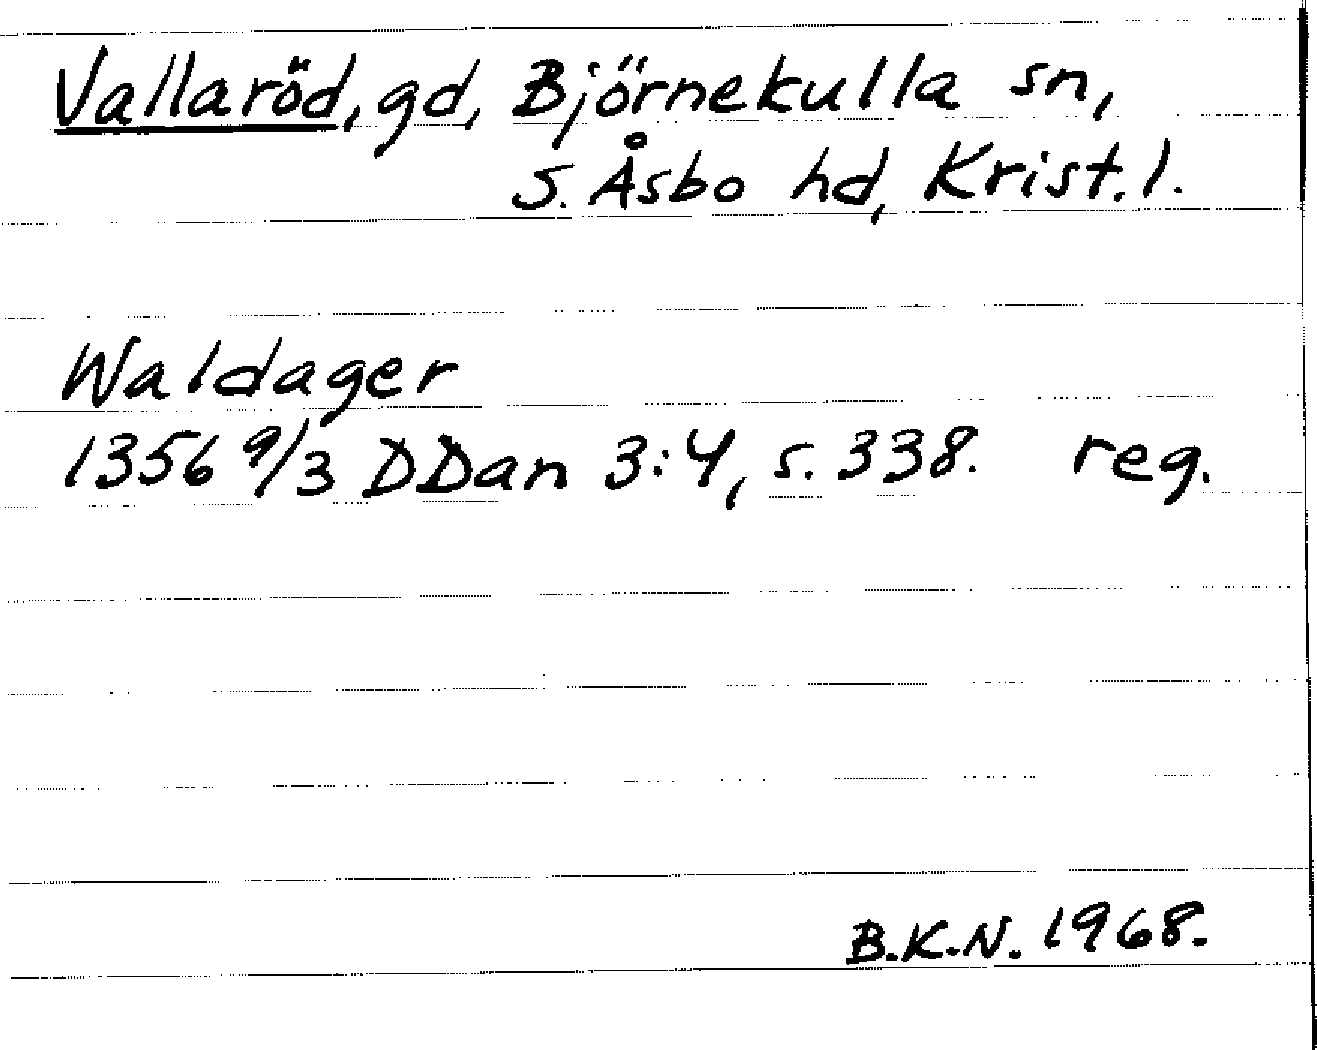 Vallaröd, gd, Björnekulla sn,
S. Åsbo hd, Krist. l.
Waldager
1356 9/3 DDan 3:4, s. 338. reg.
B.K.N. 1968.